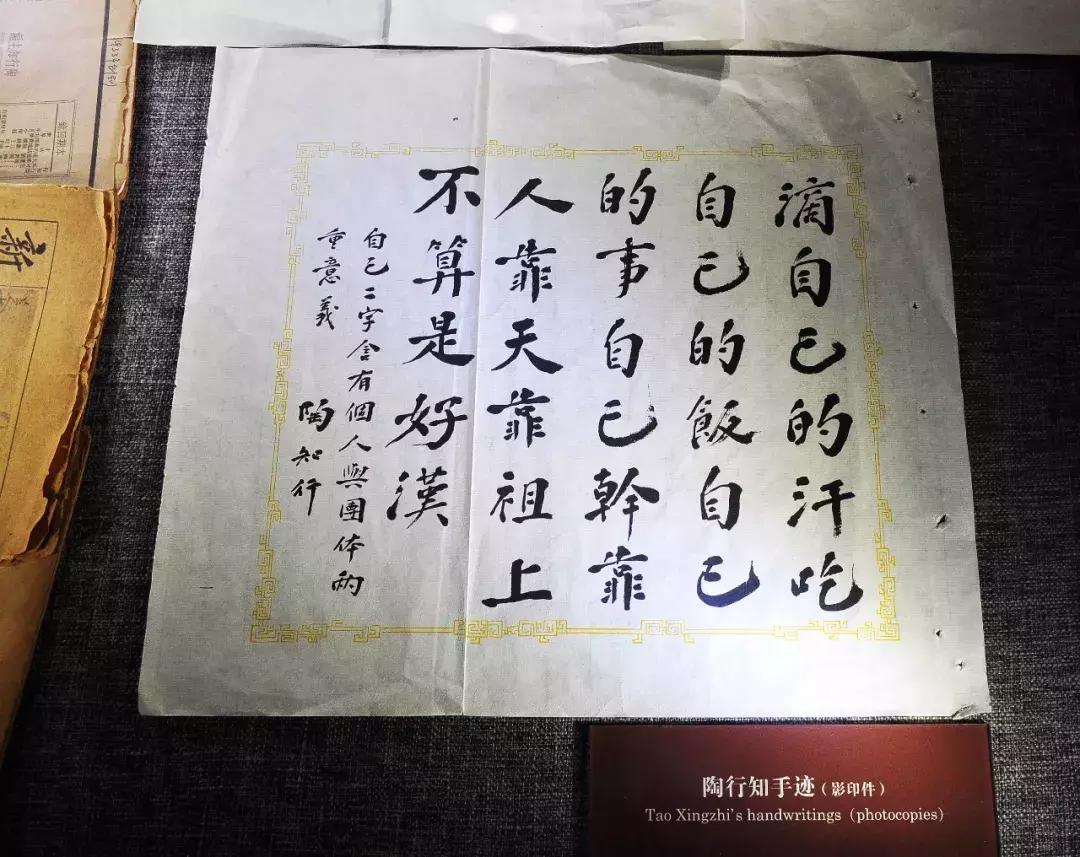 滴自己的汗吃
自己的飯自己
的事自己幹靠
人靠天靠祖上
不算是好漢
自己二字含有個人與團体兩
重意義
陶知行
陶行知手迹（影印件）
Tao Xingzhi's handwritings (photocopies)
新